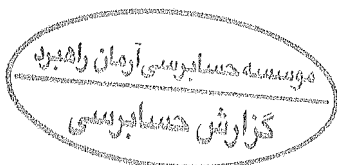 موسسه حسابرسی آرمان راهبرد
گزارش حسابرسی